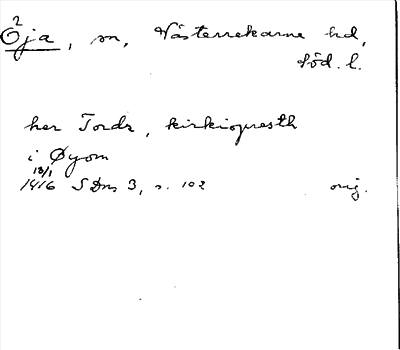 2
Öja, sn, Västerrekarne hd,
Söd. l.
her Tordr, kirkiopresth
i Øyom
18/1
1416 SDns 3, s. 102 orig.